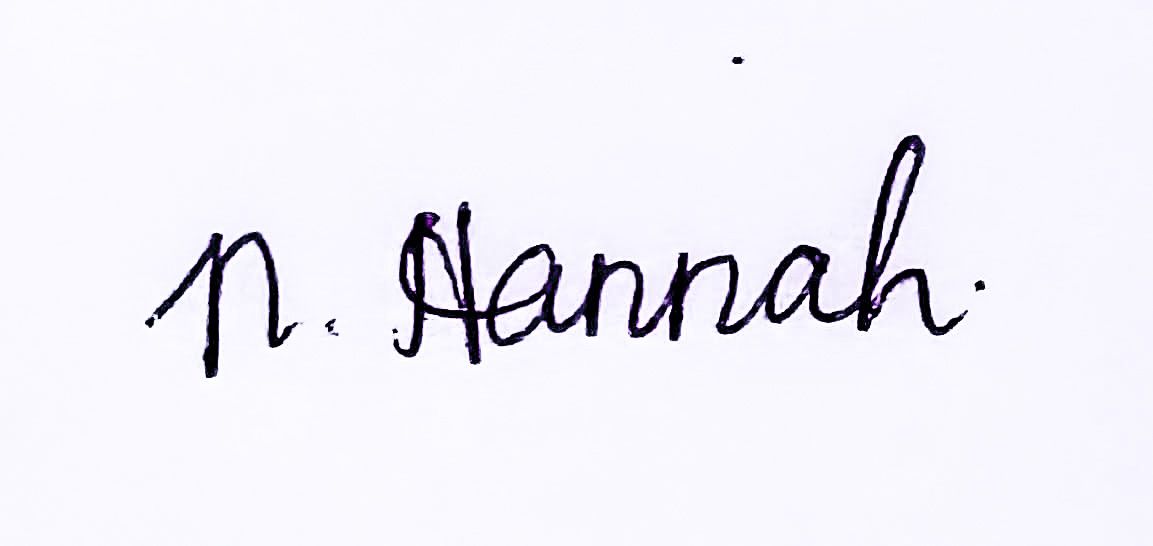 n. Hannah.